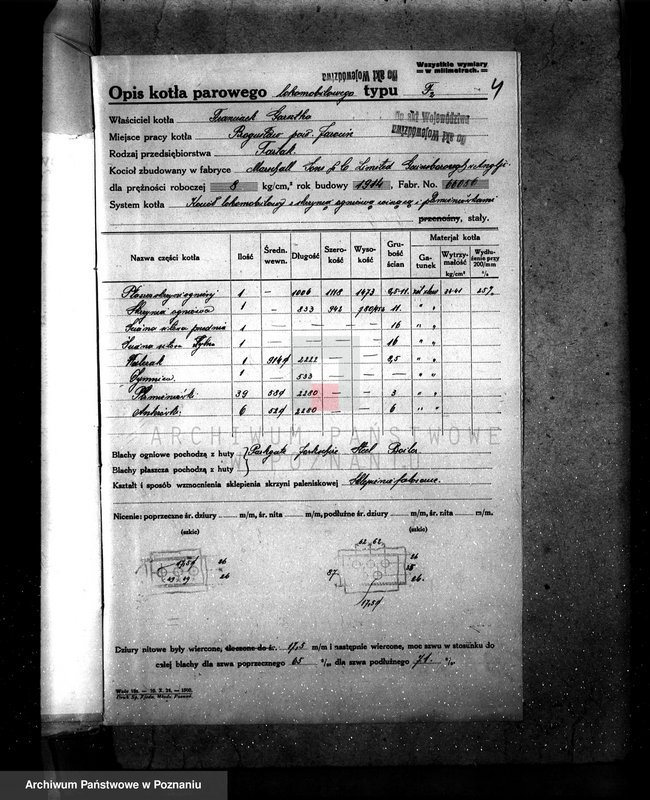 Wszystkie wymiary
= w milimetrach. =
Do akt Województwa
Opis kotła parowego lokomobilowego typu F2
4
Właściciel kotła Franciszek Garatka
Do akt Województwa
Do akt Województwa
Miejsce pracy kotła Bogusław pow. Jarocin
Rodzaj przedsiębiorstwa Tartak
Kocioł zbudowany w fabryce Marshall Sons & C Limited Gainsborough Anglji
dla prężności roboczej 8 kg/cm,² rok budowy 1914, Fabr. No. 66056
System kotła Kocioł lokomobilowy z skrzynią ogniową wiszącą i płomieniówkami
przenośny, stały.
Nazwa części kotła Ilość Średn. wewn. Długość Szerokość Wysokość Grubość ścian Materjał kotła
Gatunek Wytrzymałość kg/cm² Wydłużenie przy 200/mm %
Płaszcz skrzyni ogniowej 1 — 1006 1118 1473 9,5-11 25%
Skrzynia ogniowa 1 — 833 942 11 " "
Ściana sitowa przednia 1 — — — — 16 " "
Ściana sitowa tylna 1 — — — — 16 " "
Walczak 1 914⌀ 2222 — — 9,5 " "
Dymnica 1 — 533 — — — " "
Płomieniówki 39 2280 — — 3 " "
Ankrówki 6 52⌀ 2280 — — 6 " "
ARCHIWUM PAŃSTWOWE
W POZNANIU
Blachy ogniowe pochodzą z huty } Parkgate Yorkshire Steel Boiler
Blachy płaszcza pochodzą z huty
Kształt i sposób wzmocnienia sklepienia skrzyni paleniskowej Sklepienie falowane.
Nicenie: poprzeczne śr. dziury m/m, śr. nita m/m, podłużne śr. dziury m/m, śr. nita m/m.
(szkic) (szkic)
17,5⌀ 26
26
49 49
62 62
26
37 28
26
17,5⌀
Dziury nitowe były wiercone, tłoczone do śr. 17,5 m/m i następnie wiercone, moc szwu w stosunku do
całej blachy dla szwa poprzecznego 65 % dla szwa podłużnego 71 %
Wzór 19a. — 10. X. 24. — 1000.
Archiwum Państwowe w Poznaniu